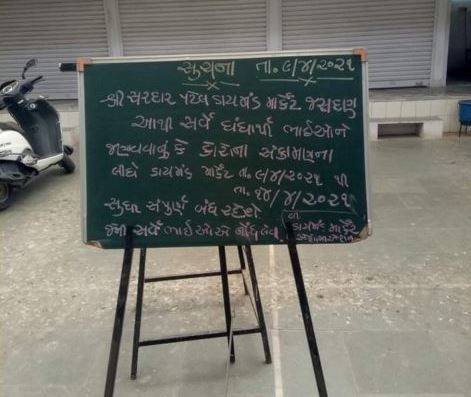 સુચના તા. ૯/૪/૨૦૨૧
શ્રી સરદાર પટેલ ડાયમંડ માર્કેટ જસદણ
આથી સર્વે ધંધાર્થી ભાઈઓને
જણાવવાનું કે કોરોના સંક્રમણના
લીધે ડાયમંડ માર્કેટ તા. ૯/૪/૨૦૨૧ થી
તા. ૧૪/૪/૨૦૨૧
સુધી સંપૂર્ણ બંધ રહેશે
જેની સર્વે ભાઈઓએ નોંધ લેવી
લી.
ડાયમંડ માર્કેટ
એસોસીએશન